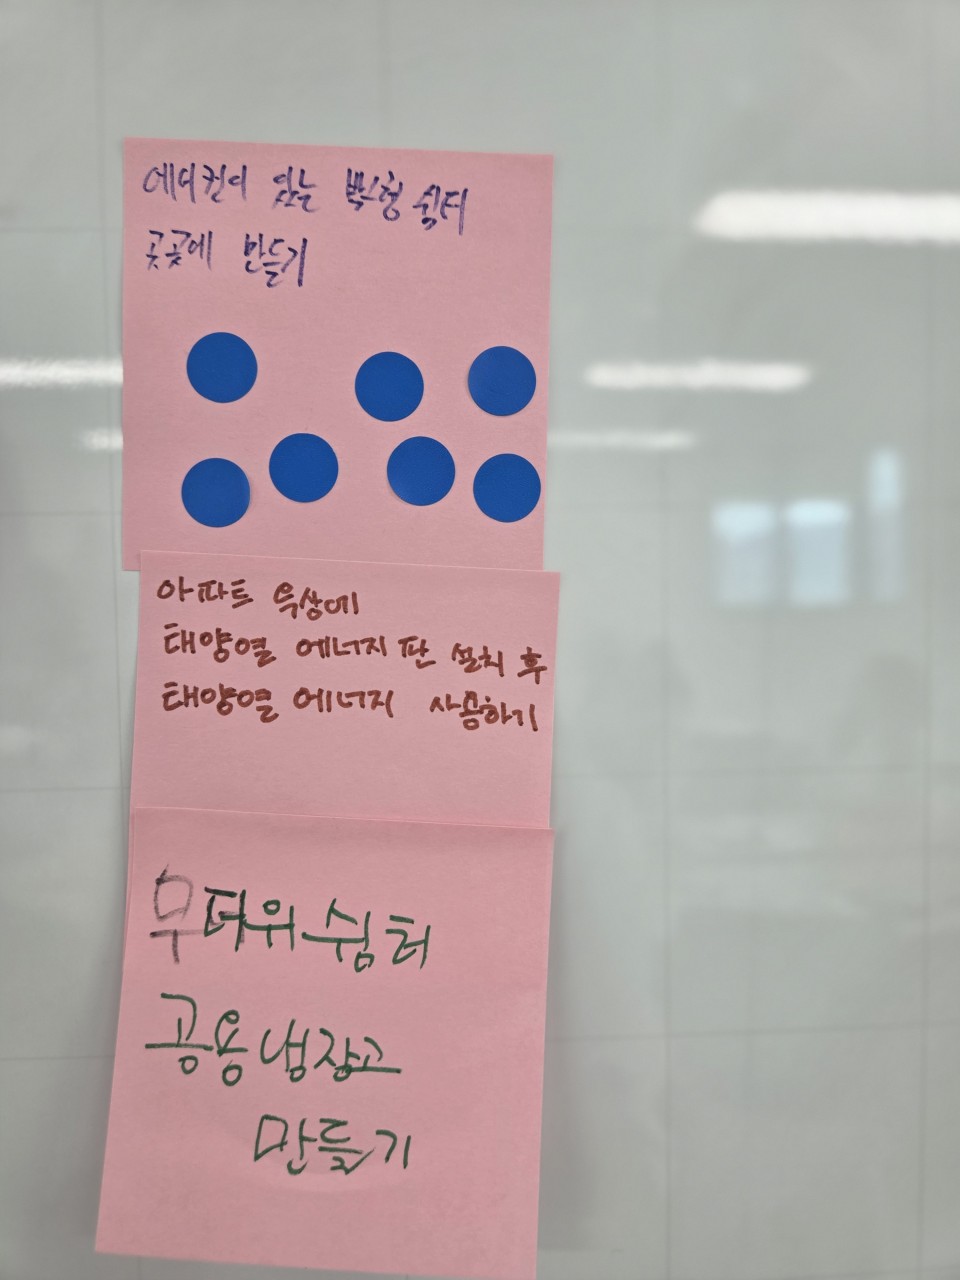 에어컨이 있는 박스형 쉼터
곳곳에 만들기
아파트 옥상에
태양열 에너지 판 설치 후
태양열 에너지 사용하기
무더위 쉼터
공용 냉장고
만들기